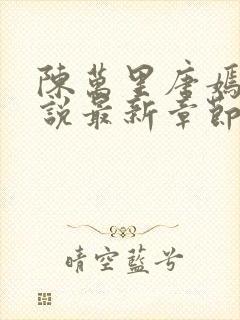 陳萬里唐嫣
說最新章節
晴空藍兮